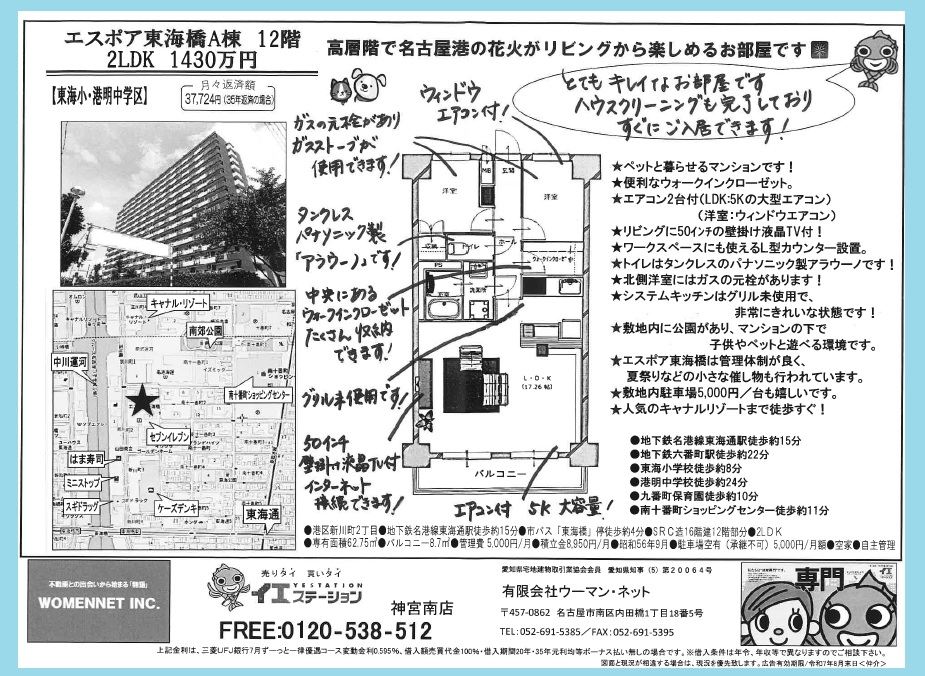 エスポア東海橋A棟 12階
2LDK 1430万円
高層階で名古屋港の花火がリビングから楽しめるお部屋です
【東海小・港明中学区】
月々返済額
37,724円(35年返済の場合)
とても キレイなお部屋です
ハウスクリーニングも完了しており
すぐにご入居できます!
ウィンドウ
エアコン付!
ガスの元栓があり
ガスストーブが
使用できます!
タンクレス
パナソニック製
「アラウーノ」です!
中央にある
ウォークインクローゼット
たくさん収納
できます!
グリル未使用です!
50インチ
壁掛け液晶TV付
インターネット
接続できます!
エアコン付 5K 大容量!
洋室
MB
玄関
洋室
収納
トイレ
ホール
ウォークインクローゼット
PS
浴室
洗面所
L・D・K
(17.26帖)
バルコニー
★ペットと暮らせるマンションです!
★便利なウォークインクローゼット。
★エアコン2台付(LDK:5Kの大型エアコン)
(洋室:ウィンドウエアコン)
★リビングに50インチの壁掛け液晶TV付!
★ワークスペースにも使えるL型カウンター設置。
★トイレはタンクレスのパナソニック製アラウーノです!
★北側洋室にはガスの元栓があります!
★システムキッチンはグリル未使用で、
非常にきれいな状態です!
★敷地内に公園があり、マンションの下で
子供やペットと遊べる環境です。
★エスポア東海橋は管理体制が良く、
夏祭りなどの小さな催し物も行われています。
★敷地内駐車場5,000円/台も嬉しいです。
★人気のキャナルリゾートまで徒歩すぐ!
●地下鉄名港線東海通駅徒歩約15分
●地下鉄六番町駅徒歩約22分
●東海小学校徒歩約8分
●港明中学校徒歩約24分
●九番町保育園徒歩約10分
●南十番町ショッピングセンター徒歩約11分
キャナル・リゾート
南郊公園
中川運河
南十番町ショッピングセンター
セブンイレブン
はま寿司
ミニストップ
スギドラッグ
ケーズデンキ
東海通
●港区新川町2丁目●地下鉄名港線東海通駅徒歩約15分●市バス「東海橋」停徒歩約4分●SRC造16階建12階部分●2LDK
●専有面積62.75㎡●バルコニー8.7㎡●管理費 5,000円/月●積立金8,950円/月●昭和56年9月●駐車場空有(承継不可)5,000円/月額●空家●自主管理
不動産との出会いから始まる「物語」
WOMENNET INC.
売りタイ 買いタイ
YESTATION
イエステーション
神宮南店
FREE:0120-538-512
愛知県宅地建物取引業協会会員 愛知県知事(5)第20064号
有限会社ウーマン・ネット
〒457-0862 名古屋市南区内田橋1丁目18番5号
TEL:052-691-5385/FAX:052-691-5395
専門
イエ
上記金利は、三菱UFJ銀行7月ずーっと一律優遇コース変動金利0.595%、借入額売買代金100%・借入期間20年・35年元利均等ボーナス払い無しの場合です。※借入条件は年令、年収等で異なりますのでご相談下さい。
図面と現況が相違する場合は、現況を優先致します。広告有効期限/令和7年8月末日<仲介>